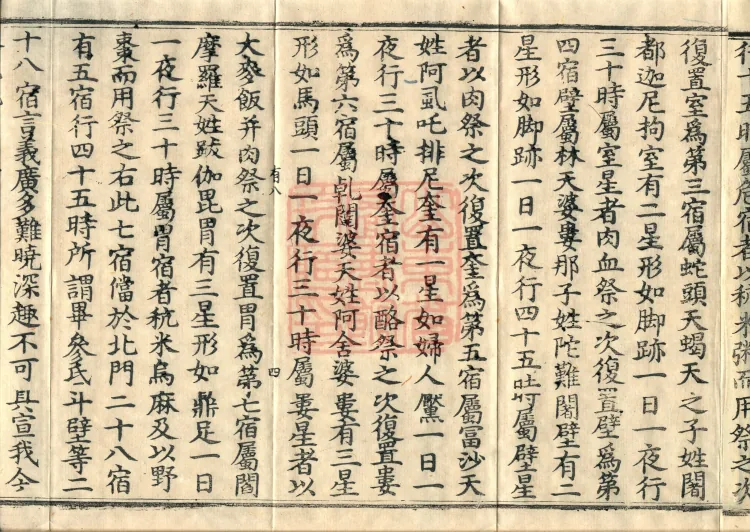 行十五時屬危宿者以粳米粥而用祭之次
復置室爲第三宿屬蛇頭天蝎天之子姓闍
都迦尼拘室有二星形如脚跡一日一夜行
三十時屬室星者肉血祭之次復置壁爲第
四宿壁屬林天婆婁那子姓陀難闍壁有二
星形如脚跡一日一夜行四十五時屬壁星
者以肉祭之次復置奎爲第五宿屬富沙天
姓阿虱吒排尼奎有一星如婦人黶一日一
夜行三十時屬奎宿者以酪祭之次復置婁
爲第六宿屬乹闥婆天姓阿舍婆婁有三星
形如馬頭一日一夜行三十時屬婁星者以
有八 四
大麥飯并肉祭之次復置胃爲第七宿屬閻
摩羅天姓跋伽毘胃有三星形如鼎足一日
一夜行三十時屬胃宿者秔米烏麻及以野
棗而用祭之右此七宿當於北門二十八宿
有五宿行四十五時所謂畢參氐斗壁等二
十八宿言義廣多難曉深趣不可具宣我今